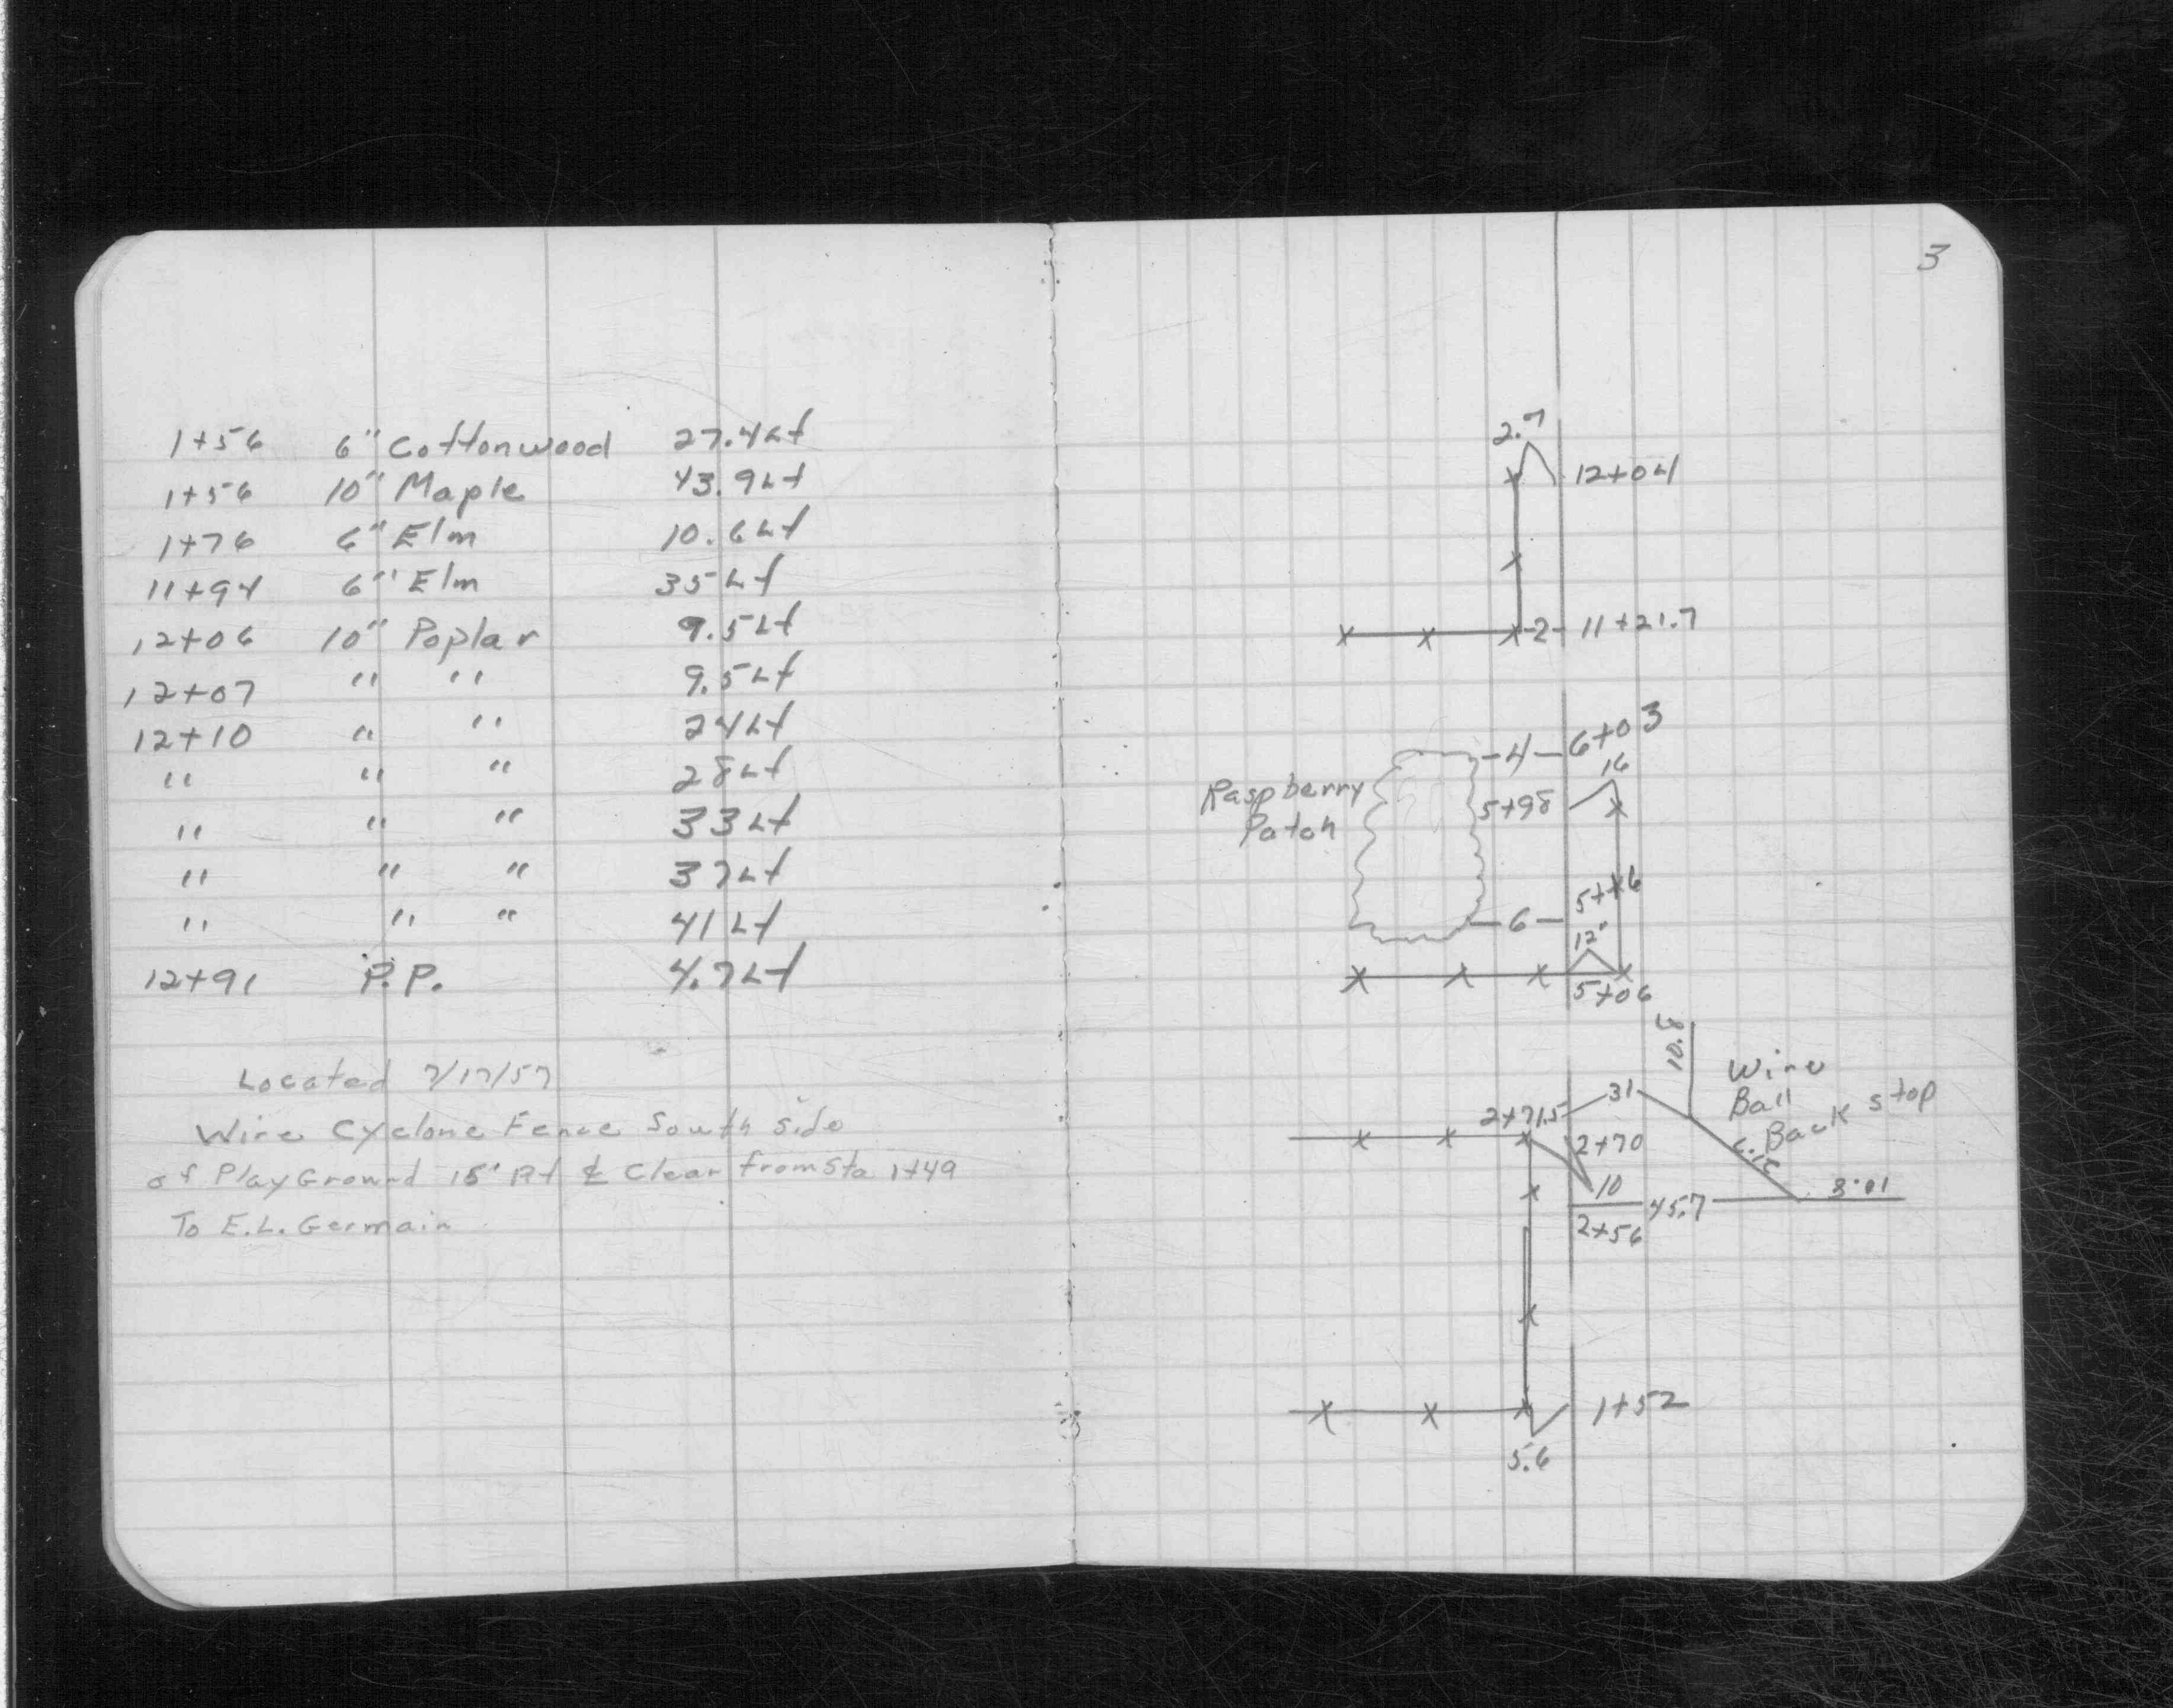 1+56 6" Cottonwood 27.4 Lt
1+56 10" Maple 43.9 Lt
1+76 6" Elm 10.6 Lt
11+94 6" Elm 35 Lt
12+06 10" Poplar 9.5 Lt
12+07 " " 9.5 Lt
12+10 " " 24 Lt
" " " 28 Lt
" " " 33 Lt
" " " 37 Lt
" " " 41 Lt
12+91 P.P. 4.7 Lt
Located 7/17/57
Wire Cyclone Fence South side
of PlayGround 15' Rt ℄ Clear from Sta 1+49
To E.L. Germain
3
2.7
12+04
2 11+21.7
4 6+03
16
Raspberry
Patch
5+98
5++6
6
12'
5+06
10.3
Wire
Ball
Back stop
31
2+71.5
2+70
10
45.7
2+56
10.8
1+52
5.6